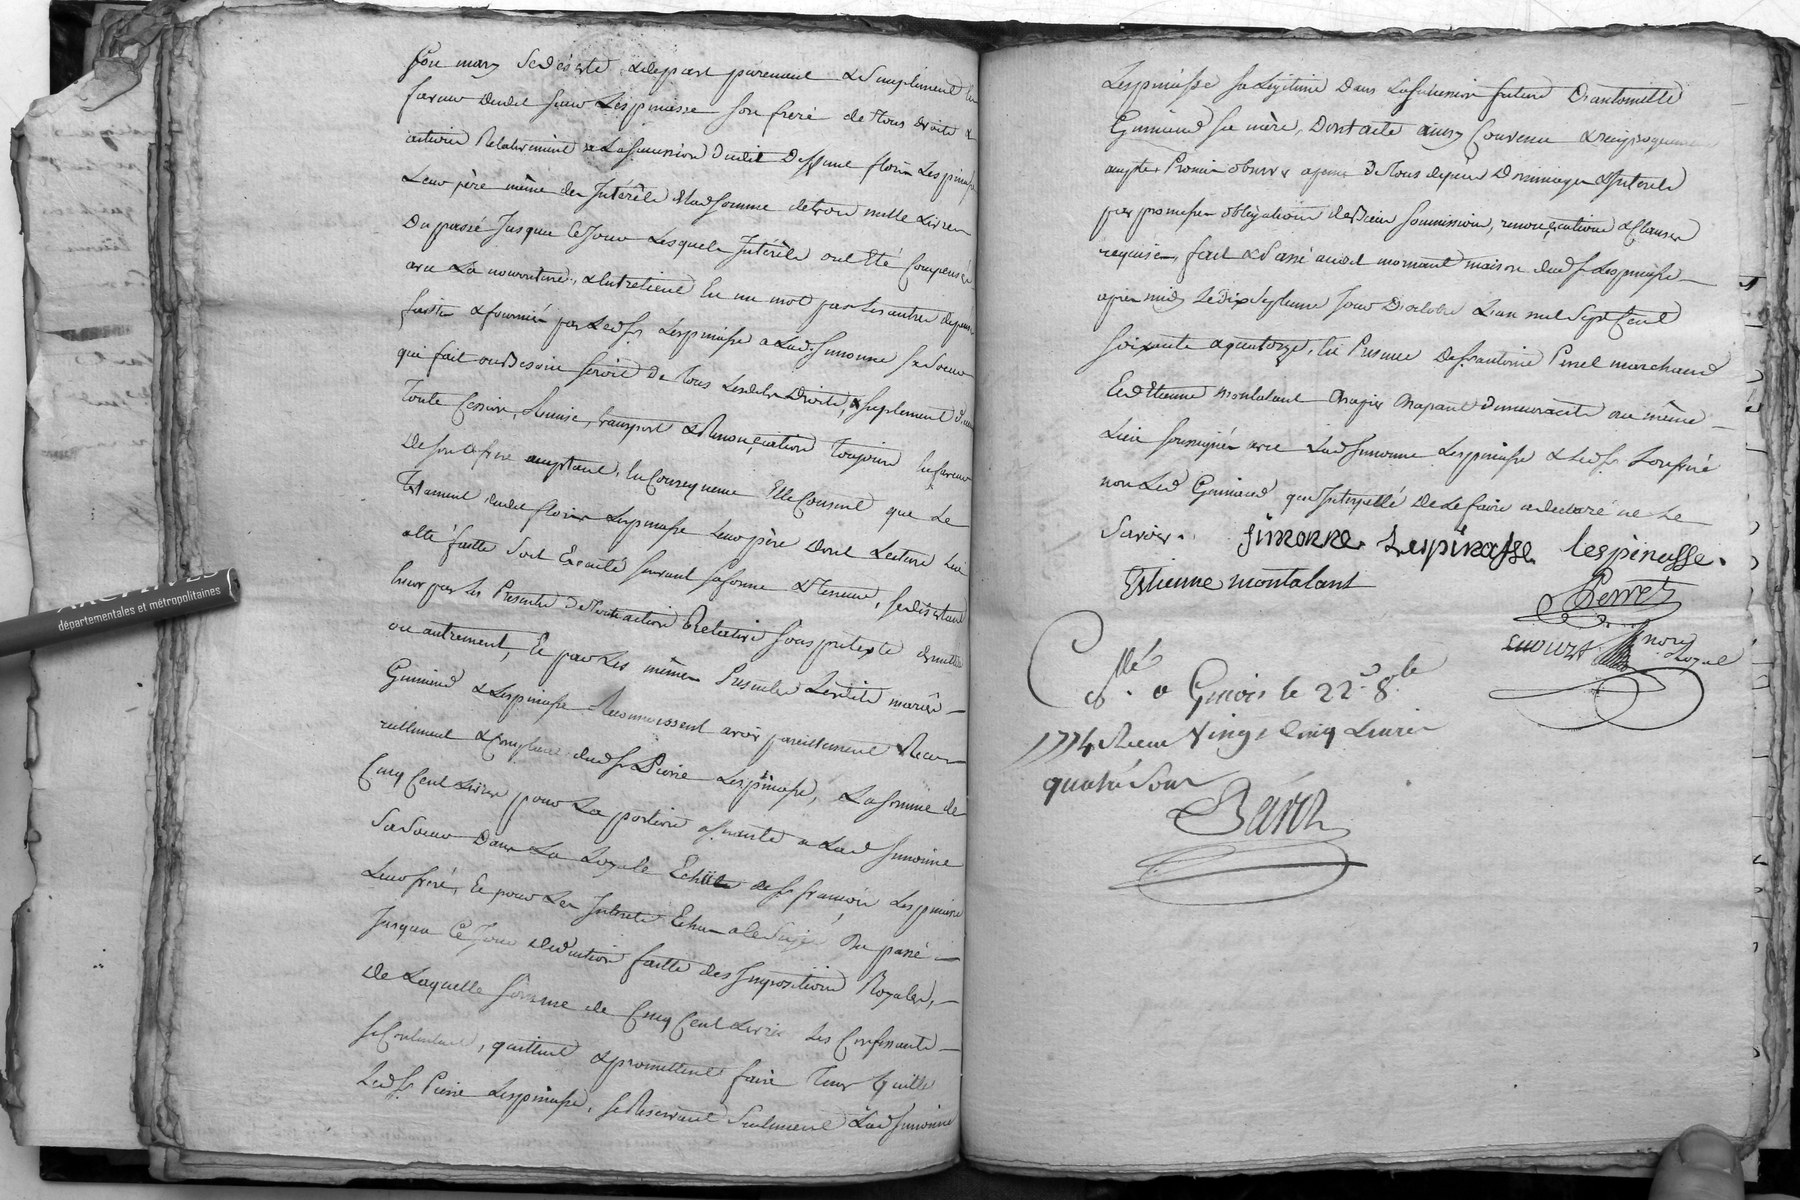 Son mary se desiste & depart purement & simplement en
faveur dudit sieur Lespinasse son frere de tous droits &
action Relativement a La succession dudit deffunt floris Lespinasse
Leur père même des Intérêts de lad somme de trois mille Livres
Du passé Jusques Ce Jour Lesquels Intérêts ont été Compensés
avec La nourriture, & Entretient En un mot par les autres depenses
faittes & fournies par Led sr Lespinasse a Lad Simonne sa soeur
qui fait ou Besoin seroit de tous Lesdits Droits, & suplement d'iceux
Toute Cession, Remise, transport & Renonciation Toujour En faveur
De son d frere acceptant, En Consequence Elle Consent que Le
Testament dudit floris Lespinasse Leur père dont Lecture Lui
a été faitte soit Exécuté suivant sa forme & teneur, se desistant
par les Presentes de toute action Relative sous pretexte de nullité
ou autrement, Et par Les mêmes Presentes Lesdits mariés
Guinand & Lespinasse Reconnoissent avoir pareillement Receu
réellement & comptant dud sr Pierre Lespinasse, La somme de
Cinq Cent Livres pour La portion afferante a Lad Simonne
sa soeur Dans La Loyale Echutte de sr françois Lespinasse
Leur frere, Et pour Les Interets Echus a le Du passé
Jusqua Ce Jour deduction faitte des Impositions Royales,
de Laquelle somme de Cinq Cent Livres Les Confessants
se Contentent, quittent & promettent faire tenir quitte
Led sr Pierre Lespinasse, se Reservant seulement Lad Simonne
Lespinasse sa Légitime Dans La succession future D'antoinette
Guinand sa mère, Dont acte ainsy Convenu & reciproquement
accepté Promis observer a peine de tous depens Dommages & Interets
par promesses obligations de Biens soummissions, renonciations & Clauses
requises, fait & Passé audit mornant maison dud sr Lespinasse
apres midy Le dix Septieme Jour D'octobre L'an mil Sept Cent
soixante & quatorze, En Presence de sr antoine Perret marchand
Et d'Etienne montalant demeurants au même
Lieu soussignés avec Lad Simonne Lespinasse & Led sr son frère
non Led Guinand qui Interpellé de Le faire a declaré ne Le
Savoir.
Simonne Lespinasse Lespinasse.
Estienne montalant
Perret
nore Royal
Cllé a Givors le 22e 8bre
1774 Receu Vingt Cinq Livres
quatre Sous
ARCHIVES
départementales et métropolitaines